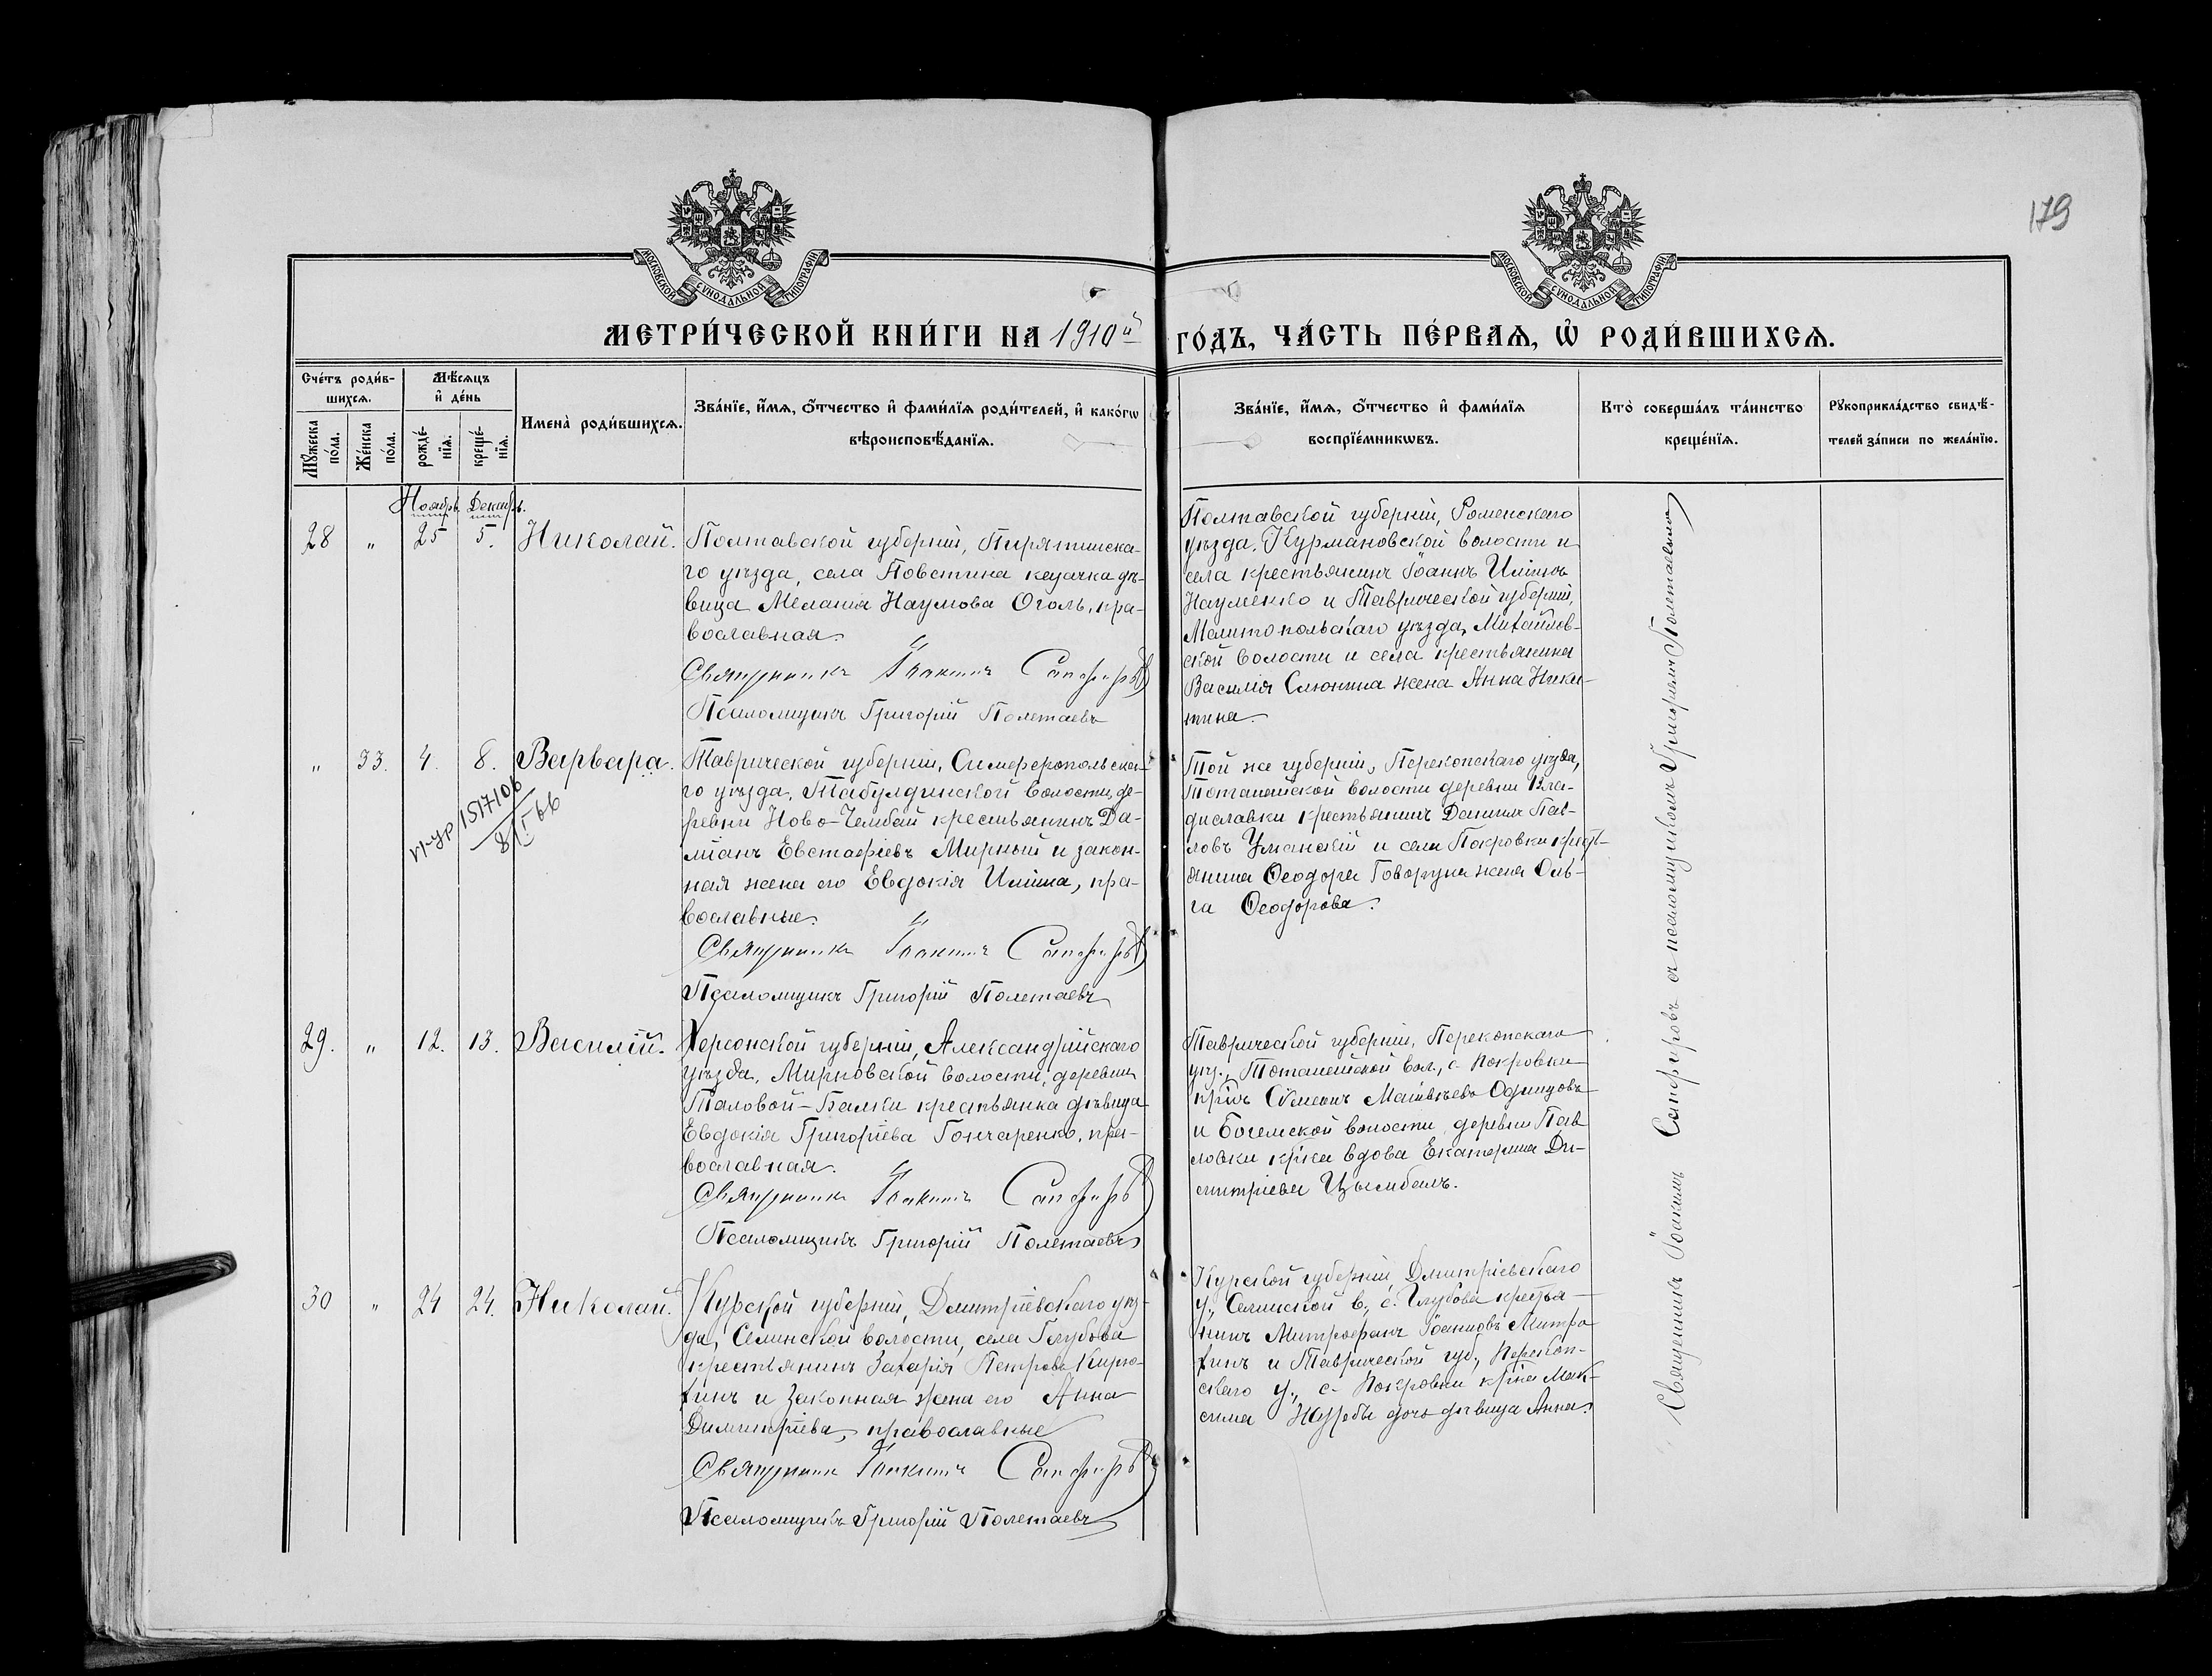 179
МОСКОВСКОЙ СѴНОДАЛЬНОЙ ТИПОГРАФІИ
МОСКОВСКОЙ СѴНОДАЛЬНОЙ ТИПОГРАФІИ
МЕТРИ́ЧЕСКОЙ КНИ́ГИ НА 1910й ГО́ДЪ, ЧА́СТЬ ПЕ́РВАѦ, Ѡ҆ РОДИ́ВШИХСѦ.
Сче́тъ роди́в-
шихсѧ.
Мꙋ́жеска по́ла.
Же́нска по́ла.
Мѣ́сѧцъ
и҆ де́нь
рожде́-
нїѧ.
креще́-
нїѧ.
Имена̀ роди́вшихсѧ.
Зва́нїе, и҆́мѧ, ѻ҆́тчество и҆ фами́лїѧ роди́телей, и҆ како́гѡ
вѣроисповѣ́данїѧ.
Зва́нїе, и҆́мѧ, ѻ҆́тчество и҆ фами́лїѧ
воспрїе́мникѡвъ.
Кто̀ соверша́лъ та́инство
креще́нїѧ.
Рꙋкоприкла́дство свидѣ́-
телей за́писи по жела́нїю.
Ноябрь. Декабрь.
28 " 25 5. Николай.
Полтавской губерніи, Пирятинска-
го уѣзда, села Повстина казачка дѣ-
вица Меланія Наумова Оголь, пра-
вославная.
Священникъ Іоакимъ Сапфировъ
Псаломщикъ Григорій Полетаевъ
Полтавской губерніи, Роменскаго
уѣзда, Курмановской волости и
села крестьянинъ Іоаннъ Иліинъ
Науменко и Таврической губерніи,
Мелитопольскаго уѣзда, Михайлов-
ской волости и села крестьянина
Василія Слюнина жена Анна Ники-
тина.
" 33. 4. 8. Варвара.
И-УР 1517106
8/I 66
Таврической губерніи, Симферопольска-
го уѣзда, Табулдинской волости, де-
ревни Ново-Чембай крестьянинъ Да-
міанъ Евстафіевъ Мирный и закон-
ная жена его Евдокія Иліина, пра-
вославные.
Священникъ Іоакимъ Сапфировъ
Псаломщикъ Григорій Полетаевъ
Той же губерніи, Перекопскаго уѣзда,
Тотанайской волости деревни Вла-
диславки крестьянинъ Даніилъ Пав-
ловъ Уманскій и села Покровки крест-
янина Ѳеодора Говоруна жена Оль-
га Ѳеодорова.
29. " 12. 13. Василій.
Херсонской губерніи, Александрійскаго
уѣзда, Мирновской волости, деревни
Таловой-Балки крестьянка дѣвица
Евдокія Григоріева Гончаренко, пра-
вославная.
Священникъ Іоакимъ Сапфировъ
Псаломщикъ Григорій Полетаевъ
Таврической губерніи, Перекопскаго
уѣз., Тотанайской вол., с. Покровки
кр-нъ Сѵмеонъ Матвѣевъ Одинцовъ
и Богемской волости, деревни Пав-
ловки кр-ка вдова Екатерина Ди-
митріева Цымбалъ.
30 " 24 24. Николай.
Курской губерніи, Дмитріевскаго уѣз-
да, Селинской волости, села Голубова
крестьянинъ Захарія Петровъ Кирю-
хинъ и законная жена его Анна
Димитріева, православные
Священникъ Іоакимъ Сапфировъ
Псаломщикъ Григорій Полетаевъ
Курской губерніи, Дмитріевскаго
у., Селинской в., с. Голубова крестья-
нинъ Митрофанъ Іоанновъ Митро-
хинъ и Таврической губ., Перекоп-
скаго у., с. Покровки кр-на Мак-
сима дочь дѣвица Анна.
Священникъ Іоакимъ Сапфировъ съ псаломщикомъ Григоріемъ Полетаевымъ